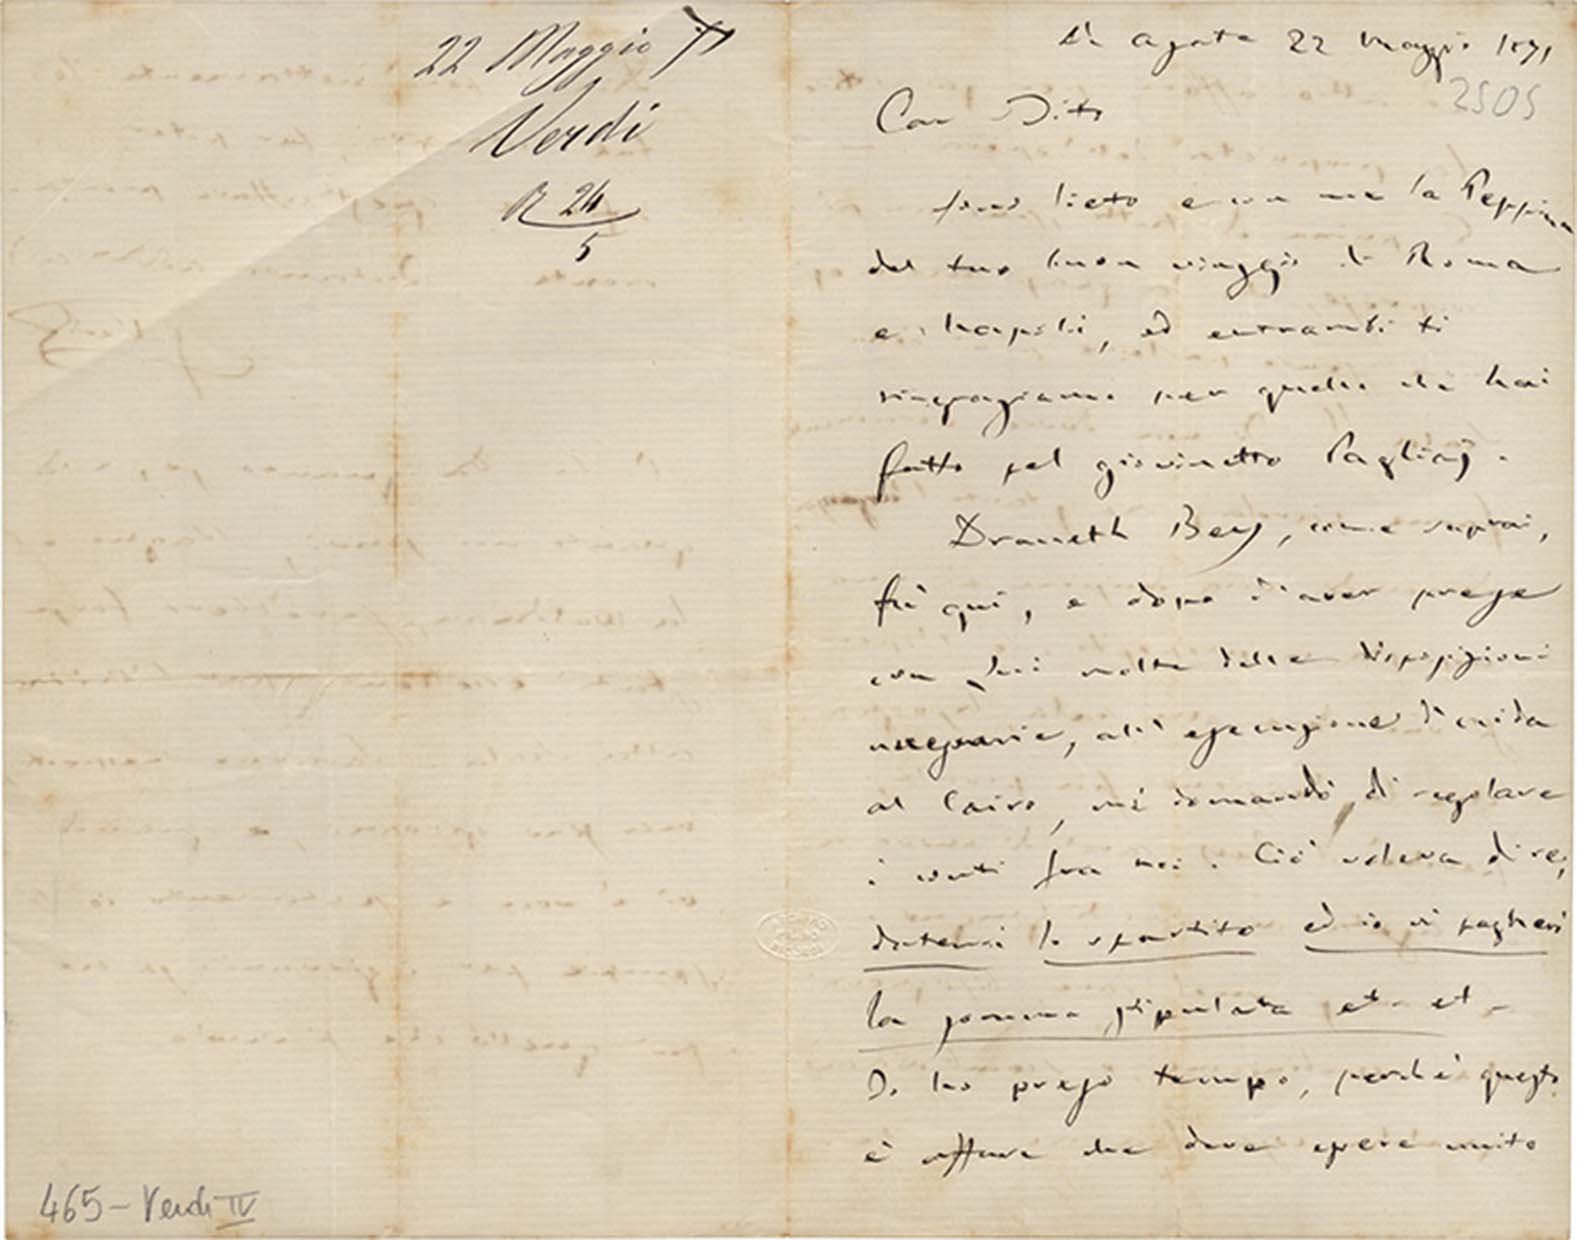 22 Maggio 71
Verdi
R 24
5
465 - Verdi IV
S. Agata 22 Maggio 1871
2505
Car Tito
Sono lieto e con me la Peppina
del tuo buon viaggio di Roma
e Napoli, ed entrambi ti
ringraziamo per quello che hai
fatto pel giovinetto
Draneth Bey, come saprai,
fu qui, e dopo d'aver prese
con molte delle disposizioni
necessarie, all' esecuzione d'Aida
al Cairo, mi domandò di regolare
i conti fra noi. Ciò voleva dire,
datemi lo spartito ed io vi pagherò
la somma stipulata et. et.
Io ho preso tempo, perchè questo
è affare che deve essere